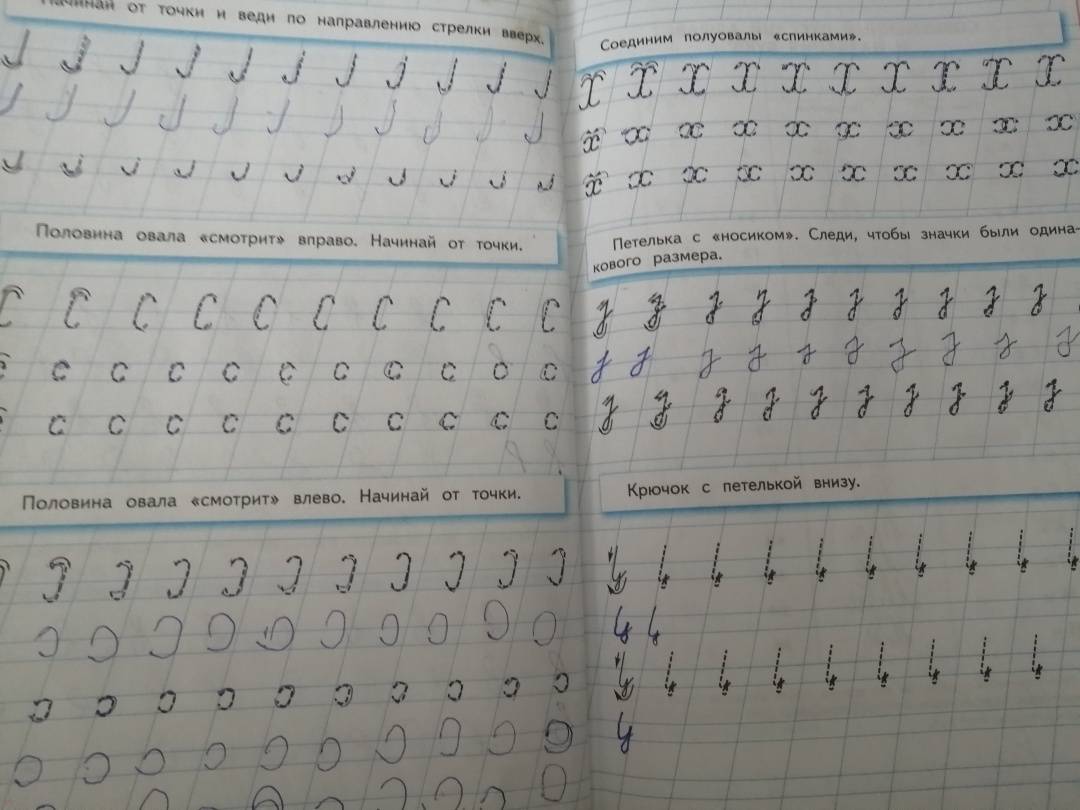 Начинай от точки и веди по направлению стрелки вверх.
Половина овала «смотрит» вправо. Начинай от точки.
Половина овала «смотрит» влево. Начинай от точки.
Соединим полуовалы «спинками».
Петелька с «носиком». Следи, чтобы значки были одина-
кового размера.
Крючок с петелькой внизу.